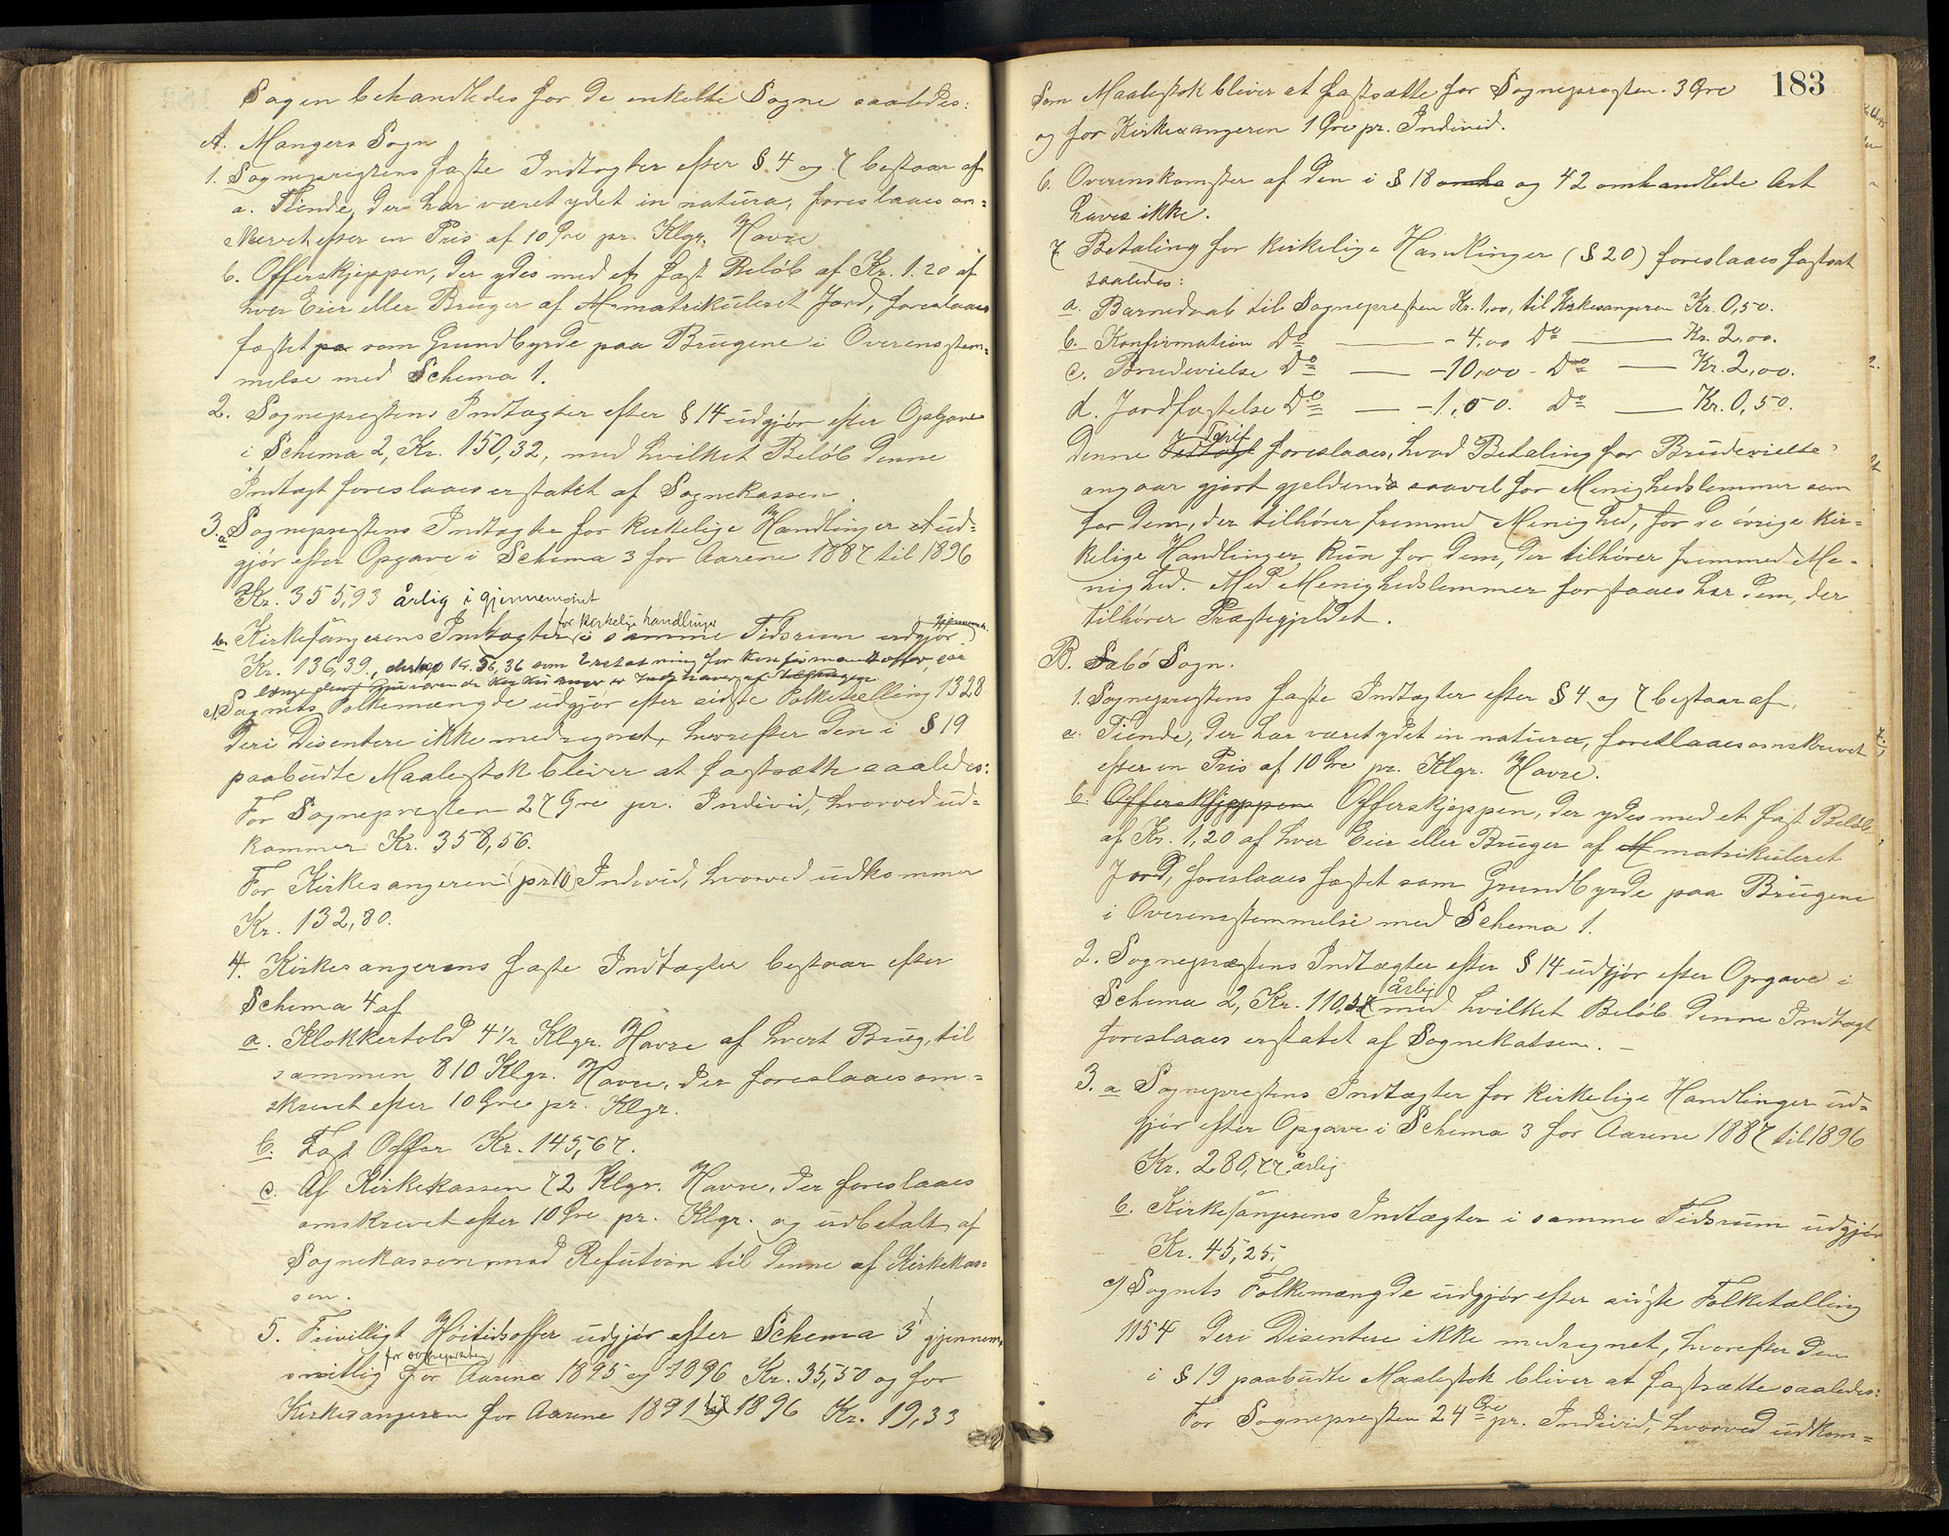 Sagen behandledes for de enkelte Sogne saaledes:
A. Mangers Sogn
1. Sogneprestens faste Indtægter efter § 4 og 7 bestaar af
a. Tiende, der har været ydet in natura, foreslaaes om=
skrevet efter en Pris af 10 Øre pr. Klgr. Havre
b. Offerskjeppen, der ydes med et fast Beløb af Kr. 1.20 af
hver Eier eller Bruger af M matrikuleret Jord, foreslaaes
fæstet pa som Grundbyrde paa Brugene i Overenstem=
melse med Schema 1.
2. Sogneprestens Indtægter efter § 14 udgjør efter Opgave
i Schema 2, Kr. 150,32, med hvilket Beløb denne
Indtægt foreslaaes erstatet af Sognekassen.
3. a Sogneprestens Indtægter for kirkelige Handlinger ud=
gjør efter Opgave i Schema 3 for Aarene 1887 til 1896
Kr. 355,93 årlig i gjennemsnit
for kirkelige handlinger gjennemsn.
b. Kirkesangerens Indtægter i samme Tidsrum udgjør
Kr. 136,39, Kr. 56,36 som Erstatning for
længe
c) Sognets Folkemængde udgjør efter sidste Folketælling 1328
deri Disentere ikke medregnet, hvorefter den i § 19
paabudte Maalestok bliver at fastsætte saaledes:
For Sognepresten 27 Øre pr. Individ, hvorved ud=
kommer Kr. 358,56.
For Kirkesangeren (pr 10) Individ, hvorved udkommer
Kr. 132,80.
4. Kirkesangerens faste Indtægter bestaar efter
Schema 4 af
a. Klokkertold 4 1/2 Klgr. Havre af hvert Brug, til
sammen 810 Klgr. Havre, der foreslaaes om=
skrevet efter 10 Øre pr. Klgr.
b. Fast Offer Kr. 145,67.
c. Af Kirkekassen 72 Klgr. Havre, der foreslaaes
omskrevet efter 10 Øre pr. Klgr. og udbetalt af
Sognekassen, med Refution til denne af Kirkekas=
sen.
5. Frivilligt Høitidsoffer udgjør efter Schema 3 gjennem=
for sognepresten
snitlig for Aarene 1895 og 1896 Kr. 35,50 og for
Kirkesangeren for Aarene 1891 til 1896 Kr. 19,33
183
Som Maalestok bliver at fastsætte for Sognepresten 3 Øre
og for Kirkesangeren 1 Øre pr. Individ.
6. Overenskomster af den i § 18 omha og 42 omhandlede Art
haves ikke.
7 Betaling for kirkelige Handlinger (§ 20) foreslaaes fastsat
saaledes:
a. Barnedaab til Sognepresten Kr. 1,00, til Kirkesangeren Kr. 0,50.
b. Konfirmation Do — - 4,00 Do — Kr. 2,00.
c. Brudevielse Do — - 10,00 - Do — Kr. 2,00.
d. Jordfæstelse Do — - 1,00. Do — Kr. 0,50.
Tarif
Denne foreslaaes, hvad Betaling for Brudevielse
angaar gjort gjeldende saavel for Menighedslemmer som
for dem, der tilhører fremmed Menighed, for de øvrige kir=
kelige Handlinger kun for dem, der tilhører fremmed Me=
nighed. Med Menighedslemmer forstaaes her dem, der
tilhører Præstegjeldet.
B. Sabø Sogn.
1. Sogneprestens faste Indtægter efter § 4 og 7 bestaar af.
a. Tiende, der har været ydet in natura, foreslaaes omskrevet
efter en Pris af 10 Øre pr. Klgr. Havre.
b. Offerskjeppen Offerskjeppen, der ydes med et fast Beløb
af Kr. 1,20 af hver Eier eller Bruger af M matrikuleret
Jord, foreslaaes fæstet som Grundbyrde paa Brugene
i Overenstemmelse med Schema 1.
2. Sogneprestens Indtægter efter § 14 udgjør efter Opgave i
årlig
Schema 2, Kr. 110,57 med hvilket Beløb denne Indtægt
foreslaaes erstatet af Sognekatsen. —
3. a Sogneprestens Indtægter for kirkelige Handlinger ud=
gjør efter Opgave i Schema 3 for Aarene 1887 til 1896
Kr. 280,77 årlig
b. Kirkesangerens Indtægter i samme Tidsrum udgjør
Kr. 45,25,
c) Sognets Folkemængde udgjør efter sidste Folketælling
1154 deri Disentere ikke medregnet, hvorefter den
i § 19 paabudte Maalestok bliver at fastsætte saaledes:
For Sognepresten 24 Øre pr. Individ, hvorved udkom=